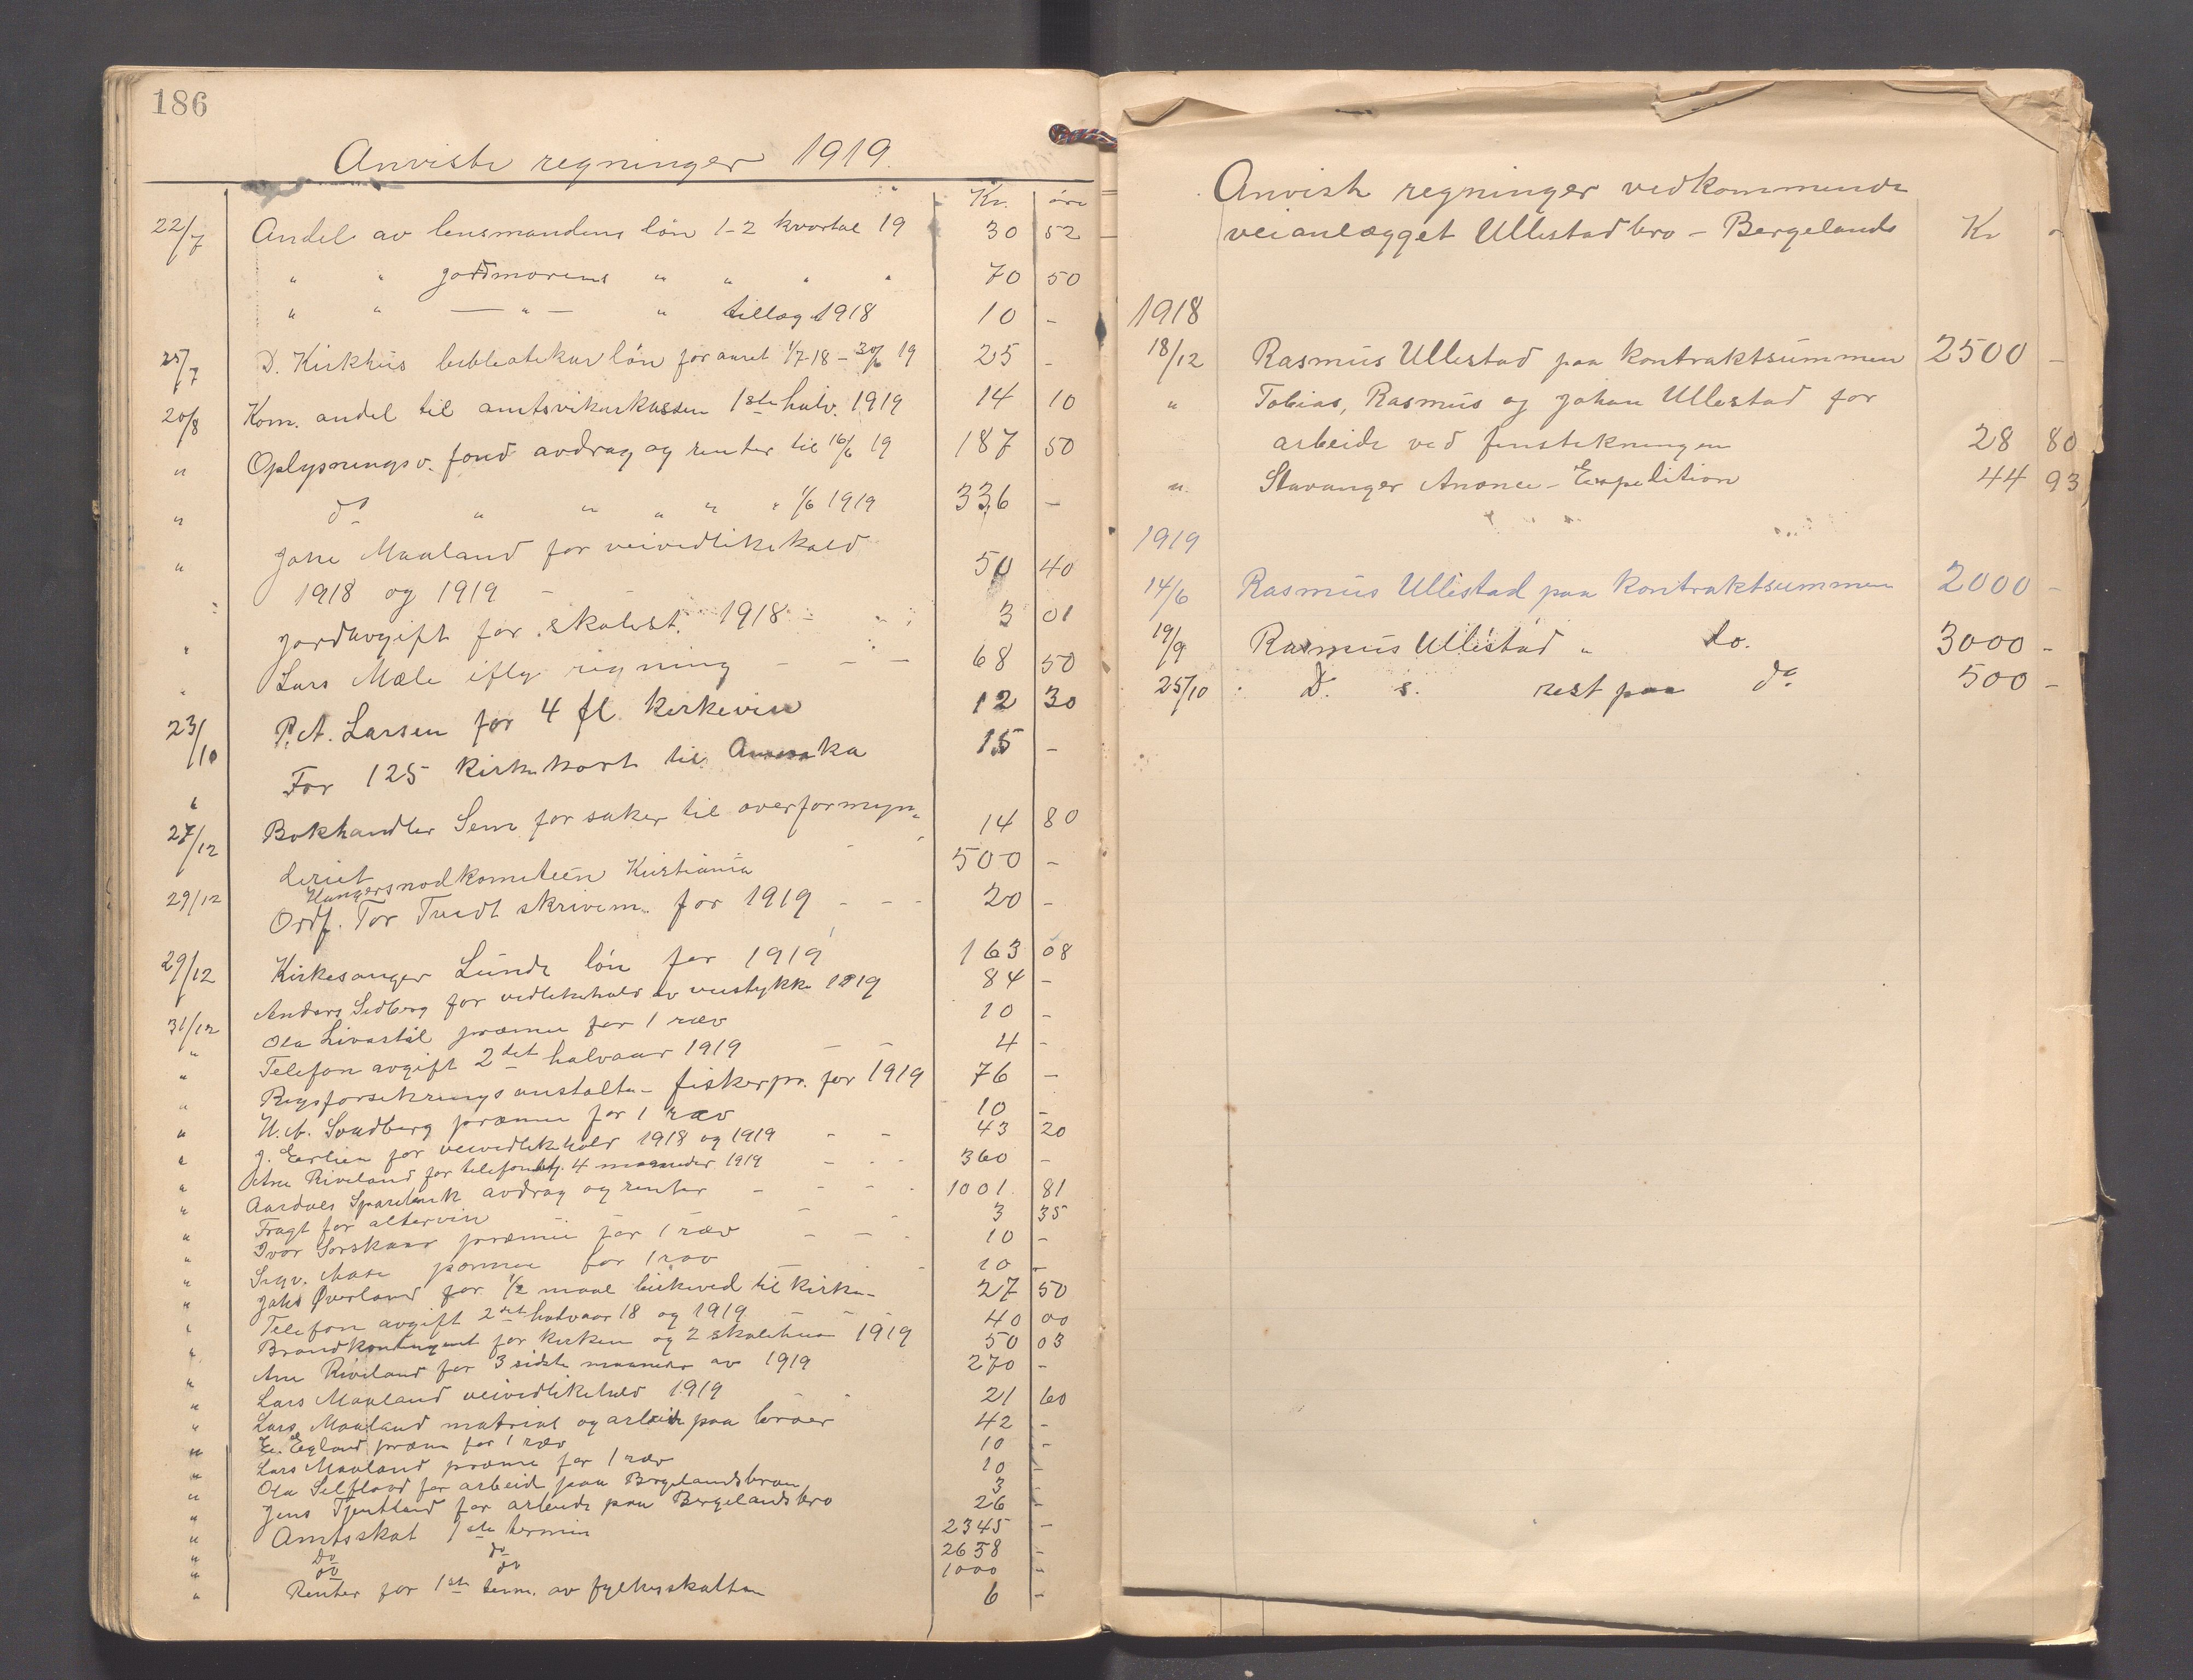 186
Anviste regninger 1919.
Kr. øre
22/7 Andel av lensmandens løn 1-2 kvartal 19 30 52
" " jordmorens " " " " 70 50
" " — " — " tillæg 1918 10 -
25/7 D. Kirkhus bibliotekar løn for aaret 1/7-18 - 30/6 19 25 -
20/8 Kom. andel til amtsvikarkassen 1ste halv. 1919 14 10
" Oplysningsv. fond avdrag og renter til 16/6 19 187 50
" do " " " " " 1/6 1919 336 -
" Jone Maaland for veivedlikehold
1918 og 1919 - 50 40
" Jordavgift for skolest. 1918 - " 3 01
" Lars Mæle iflg regning - - - 68 50
23/10 P.A. Larsen for 4 fl. kirkevin 12 30
" For 125 kirkekort til Amerika 15 -
27/12 Bokhandler Sem for saker til overformyn-
deriet 14 80
Hungersnødkomiteen Kristiania 500 -
29/12 Ordf. Tor Tveidt skrivem. for 1919 - - - 20 -
29/12 Kirkesanger Lunde løn for 1919 163 08
Anders Sedberg for vedlikehold av veistykke 1919 84 -
31/12 Ola Livastøl præmie for 1 ræv 10 -
" Telefon avgift 2det halvaar 1919 - - 4 -
" Rigsforsekringsanstalten - fiskerpr. for 1919 76 -
" præmie for 1 ræv 10 -
" J. Eerlien for veivedlikehold 1918 og 1919 - - 43 20
" Ane Riveland for telefonbetj. 4 maaneder 1919 - - - 360 -
" Aardals Sparebank avdrag og renter - - - - 1001. 81
" Fragt for altervin - - 3 35
" Ivar Sørskaar præmie for 1 ræv - - - 10 -
" Sigv. præmie for 1 ræv - - - 10 -
" Johs Øverland for 1/2 maal birkeved til kirken - 27 50
" Telefon avgift 2det halvaar 18 og 1919 - - - 40 00
" Brandkontingent for kirken og 2 skolehus 1919 50 03
" Ane Riveland for 3 sidste maaneder av 1919 270 -
" Lars Maaland veivedlikehold 1919 - - 21 60
" Lars Maaland matrial og arbeide paa broer 42 -
" E. Egland præmie for 1 ræv 10 -
" Lars Maaland præmie for 1 ræv 10 -
" Ola for arbeide paa Bergelandsbroen 3 -
" Jens Tjentland for arbeide paa Bergelandsbro 26 -
" Amtsskat 1ste termin 2345 -
" Do do 2658 -
" do do 1000 -
" Renter for 1ste term. av fylkesskatten 6 -
Anviste regninger vedkommende
veianlægget Ullestadbro - Bergelands Kr
1918
18/12 Rasmus Ullestad paa kontraktsummen 2500 -
" Tobias, Rasmus og Johan Ullestad for
arbeide ved finstikningen 28 80
" Stavanger Anonce-Expedition 44 93
1919
14/6 Rasmus Ullestad paa kontraktsummen 2000 -
19/9 Rasmus Ullestad " do. 3000 -
25/10 D. s. rest paa do 500 -